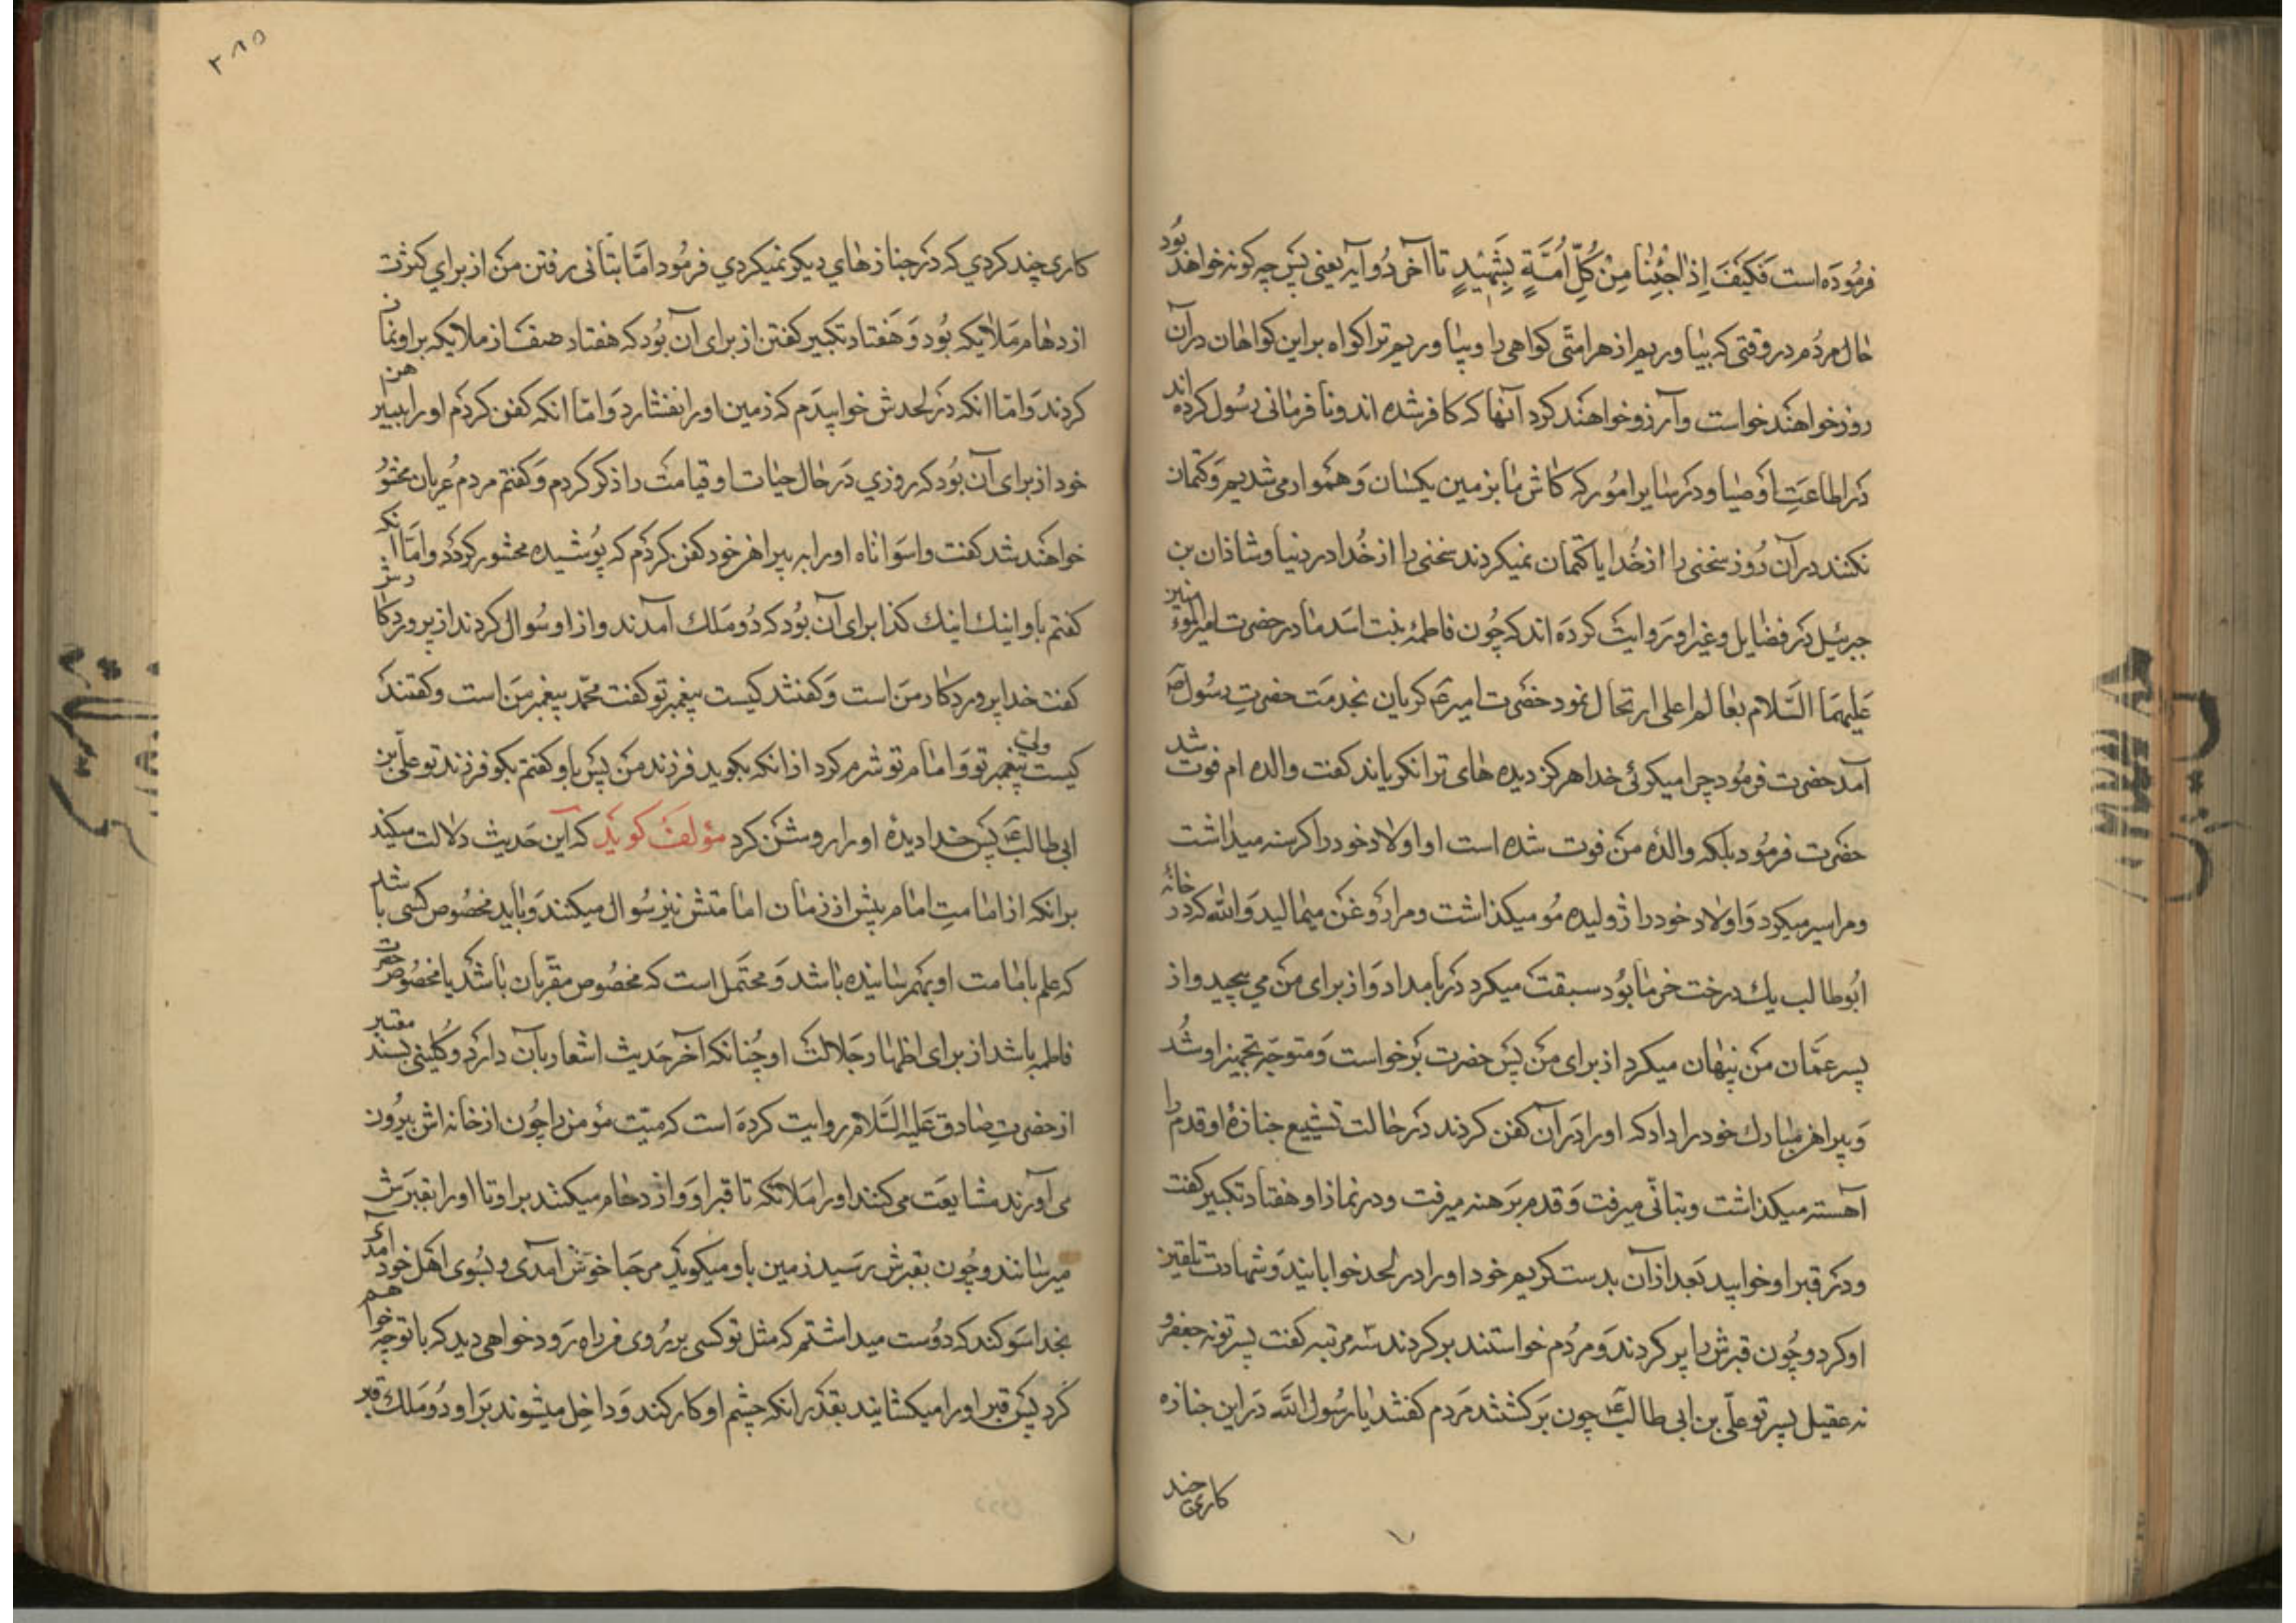 فرموده است فَكَيْفَ اِذٰا جِئْنٰا مِنْ كُلِّ اُمَّةٍ بِشَهِیْدٍ تا آخر دو آیه یعنی پس چه کونه خواهد بود
حال مردم در وقتی که بیاوریم از هر امتی کواهی را و بیاوریم ترا کواه بر این کواهان در آن
روز خواهند خواست و آرزو خواهند کرد آنها که کافر شده اند و نا فرمانی رسول کرده اند
در اطاعت اوصیا و در سایر امور که کاش ما بزمین یکسان و هموار می شدیم و کتمان
نکنند در آن روز سخنی را از خدا یا کتمان نمیکردند سخنی را از خدا در دنیا و شاذان بن
جبرئیل در فضایل و غیر او روایت کرده اند که چون فاطمهٔ بنت اسد مادر حضرت امیر المؤمنین
علیهما السلام بعالم اعلی ارتحال نمود حضرت امیر ع کریان بخدمت حضرت رسول ص
آمد حضرت فرمود چرا میکرئی خدا هرکز دیده های ترا نکریاند کفت والده ام فوت شد
حضرت فرمود بلکه والدهٔ من فوت شده است او اولاد خود را کرسنه میداشت
و مرا سیر میکرد و اولاد خود را ژولیده مو میکذاشت و مرا روغن میمالید و الله که در خانهٔ
ابوطالب یك درخت خرما بود سبقت میکرد در بامداد و از برای من می چید و از
پسر عمان من پنهان میکرد از برای من پس حضرت برخواست و متوجه تجهیز او شد
و پیراهن مبارك خود را داد که او را در آن کفن کردند در حالت تشییع جنازهٔ او قدم را
آهسته میکذاشت و بتانی میرفت و قدم برهنه میرفت و در نماز او هفتاد تکبیر کفت
و در قبر او خوابید بعد از آن بدست کریم خود او را در لحد خوابانید و شهادت تلقین
او کرد و چون قبرش را پر کردند و مردم خواستند برکردند سه مرتبه کفت پسر تو نه جعفر و
نه عقیل پسر تو علی بن ابی طالب ع چون برکشتند مردم کفتند یا رسول الله در این جنازه
کاری چند
۳۸۵
کاری چند کردی که در جنازهای دیکر نمیکردی فرمود اما بتانی رفتن من از برای کثرت
ازدهام ملایکه بود و هفتاد تکبیر کفتن از برای آن بود که هفتاد صف از ملایکه بر او نماز
کردند و اما انکه در لحدش خوابیدم که زمین او را نفشارد و اما انکه کفن کردم او را بپیرهن
خود از برای آن بود که روزی در حال حیات او قیامت را ذکر کردم و کفتم مردم عریان محشور
خواهند شد کفت واسواتاه او را به پیراهن خود کفن کردم که پوشیده محشور کردد و اما انکه
کفتم باو اینك اینك کذا برای آن بود که دو ملك آمدند و از او سوال کردند از پروردکارش
کفت خدا پروردکار من است و کفتند کیست پیغمبر تو کفت محمد پیغمبر من است و کفتند
کیست ولی تو و امام تو شرم کرد از انکه بکوید فرزند من پس باو کفتم بکو فرزند تو علی بن
ابی طالب ع پس خدا دیدهٔ او را روشن کرد مؤلف کوید که این حدیث دلالت میکند
بر انکه از امامت امام پیش از زمان امامتش نیز سوال میکنند و باید مخصوص کسی باشد
که علم بامامت او بهم رسانیده باشد و محتمل است که مخصوص مقربان باشد یا مخصوص حضرت
فاطمه باشد از برای اظهار جلالت او چنانکه آخر حدیث اشعار بآن دارد و کلینی بسند معتبر
از حضرت صادق علیه السلام روایت کرده است که میت مؤمن را چون از خانه اش بیرون
می آورند مشایعت می کنند او را ملائکه تا قبر او و ازدحام میکنند بر او تا او را بقبرش
میرسانند و چون بقبرش رسید زمین باو میکوید مرحبا خوش آمدی و بسوی اهل خود آمدی
بخدا سوکند که دوست میداشتم که مثل تو کسی بر روی من راه رود خواهی دید که با تو چه خواهم
کرد پس قبر او را میکشایند بقدر انکه چشم او کار کند و داخل میشوند بر او دو ملك قبر